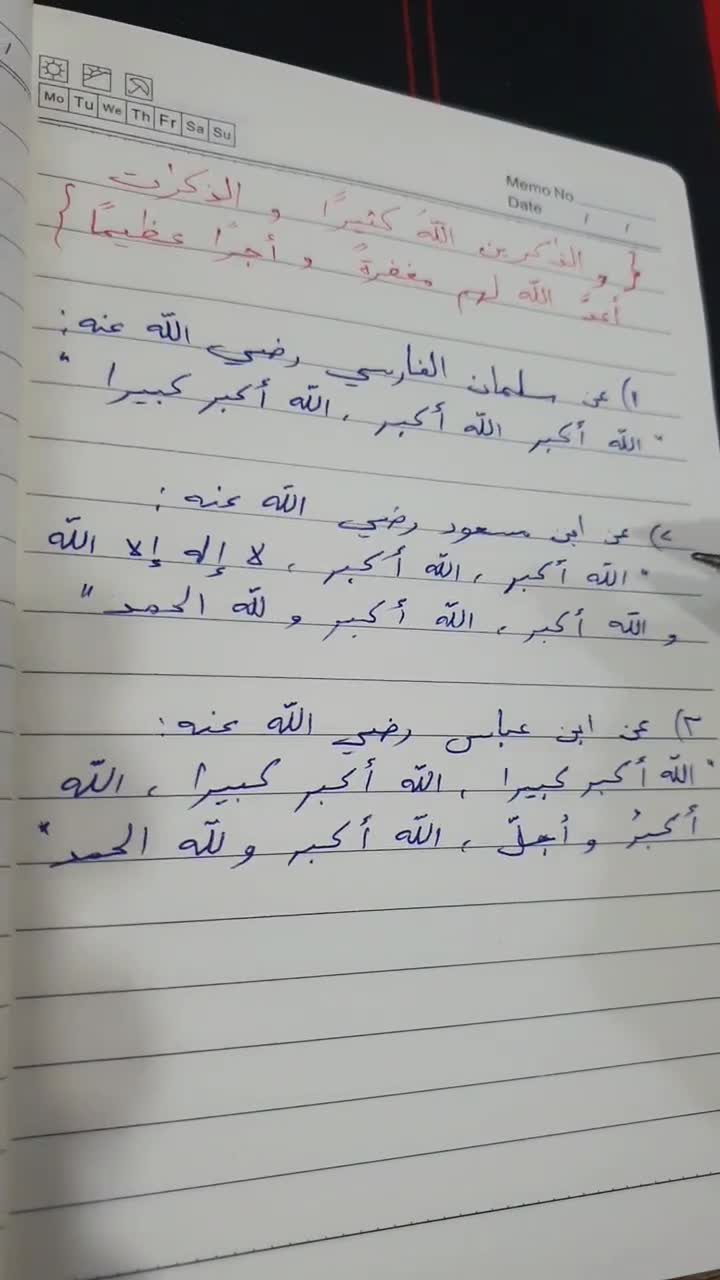 Mo Tu We Th Fr Sa Su
Memo No.
Date / /
{ والذاكرين اللّهَ كثيرًا و الذكرات
أعدَّ اللّه لهم مغفرةً و أجرًا عظيمًا }
١) عن سلمان الفارسي رضي اللّه عنه:
"اللّه أكبر اللّه أكبر، اللّه أكبر كبيرا"
٢) عن ابن مسعود رضي اللّه عنه:
"اللّه أكبر، اللّه أكبر، لا إله إلا اللّه
و اللّه أكبر، اللّه أكبر و للّه الحمد"
٣) عن ابن عباس رضي اللّه عنه:
"اللّه أكبر كبيرا، اللّه أكبر كبيرا، اللّه
أكبرُ و أجلّ، اللّه أكبر وللّه الحمد"